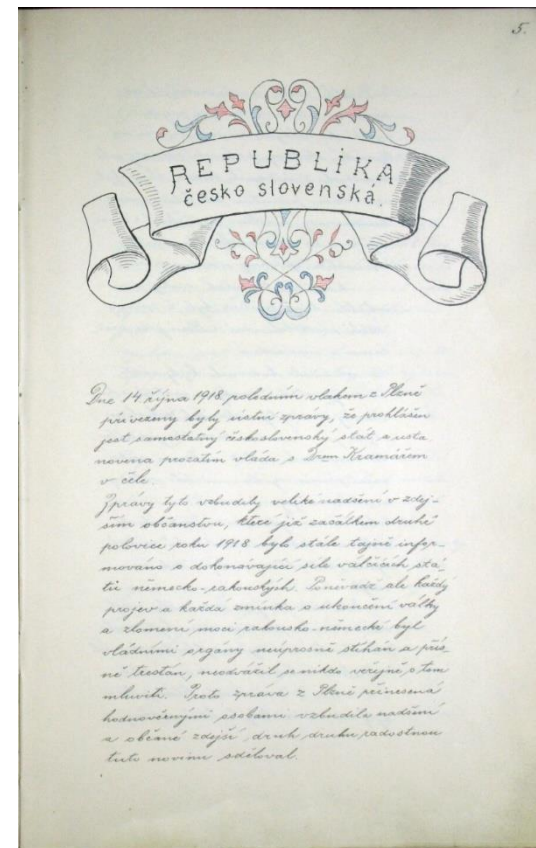 5.
REPUBLIKA
česko slovenská.
Dne 14 října 1918 poledním vlakem z Plzně
přivezeny byly ústní zprávy, že prohlášen
jest samostatný československý stát a usta
novena prozatím vláda s Drem Kramářem
v čele.
Zprávy tyto vzbudily veliké nadšení v zdej-
ším občanstvu, které již začátkem druhé
polovice roku 1918 bylo stále tajně infor-
mováno o dokonávající síle válčících stá-
tů německo-rakouských. Poněvadž ale každý
projev a každá zmínka o ukončení války
a zlomení moci rakousko-německé byl
vládními orgány neúprosně stíhán a přís-
ně trestán, neodvážil se nikdo veřejně o tom
mluviti. Proto zpráva z Plzně přinesená
hodnověrnými osobami vzbudila nadšení
a občané zdejší druh druhu radostnou
tuto novinu sděloval.